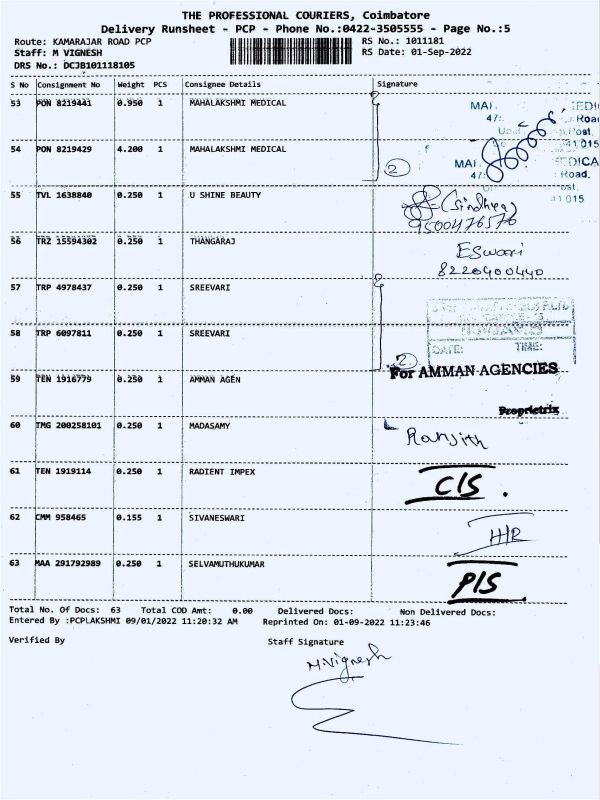 THE PROFESSIONAL COURIERS, Coimbatore
Delivery Runsheet - PCP - Phone No.:0422-3505555 - Page No.:5
Route: KAMARAJAR ROAD PCP RS No.: 1011181
Staff: M VIGNESH RS Date: 01-Sep-2022
DRS No.: DCJB101118105
S No Consignment No Weight PCS Consignee Details Signature
53 PON 8219441 0.950 1 MAHALAKSHMI MEDICAL
54 PON 8219429 4.200 1 MAHALAKSHMI MEDICAL 2
55 TVL 1638840 0.250 1 U SHINE BEAUTY
9500476576
56 TRZ 15594302 0.250 1 THANGARAJ Eswari
8220400440
57 TRP 4978437 0.250 1 SREEVARI
58 TRP 6097811 0.250 1 SREEVARI 2
DATE: TIME:
59 TEN 1916779 0.250 1 AMMAN AGEN For AMMAN AGENCIES
Proprietrix
60 TMG 200258101 0.250 1 MADASAMY Ranjith
61 TEN 1919114 0.250 1 RADIENT IMPEX C/S .
62 CMM 958465 0.155 1 SIVANESWARI H/R
63 MAA 291792989 0.250 1 SELVAMUTHUKUMAR P/S
Total No. Of Docs: 63 Total COD Amt: 0.00 Delivered Docs: Non Delivered Docs:
Entered By :PCPLAKSHMI 09/01/2022 11:20:32 AM Reprinted On: 01-09-2022 11:23:46
Verified By Staff Signature
M.Vignesh